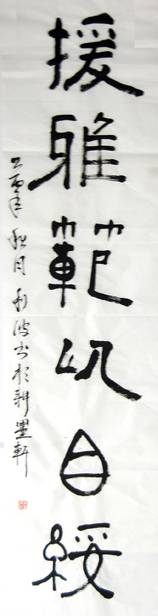 援雅範以自綏
乙酉年秋月利波书於耕墨軒